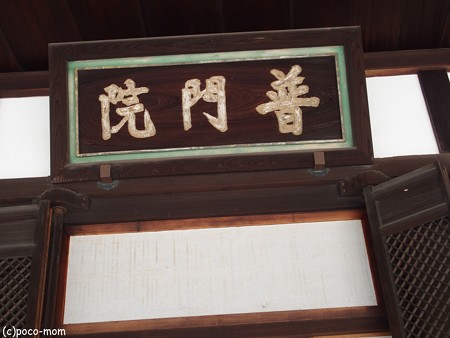 普門院
(c)poco-mom